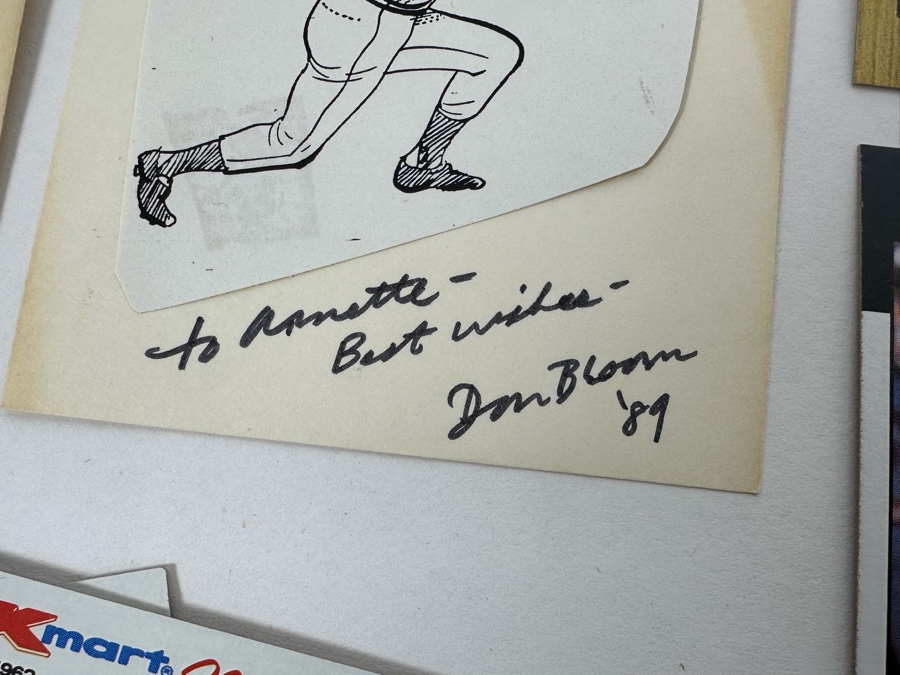 to Annette -
Best wishes -
Don Bloom
'89
Kmart®
1962